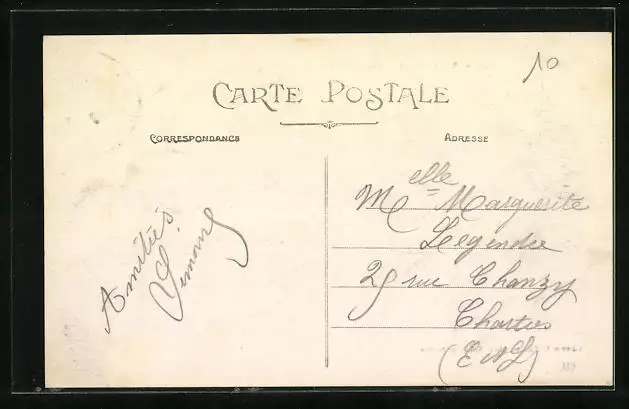 10
CARTE POSTALE
CORRESPONDANCE
ADRESSE
Amitiés
Simone
Melle Marguerite
Legendre
29 rue Chanzy
Chartres
(E et L)